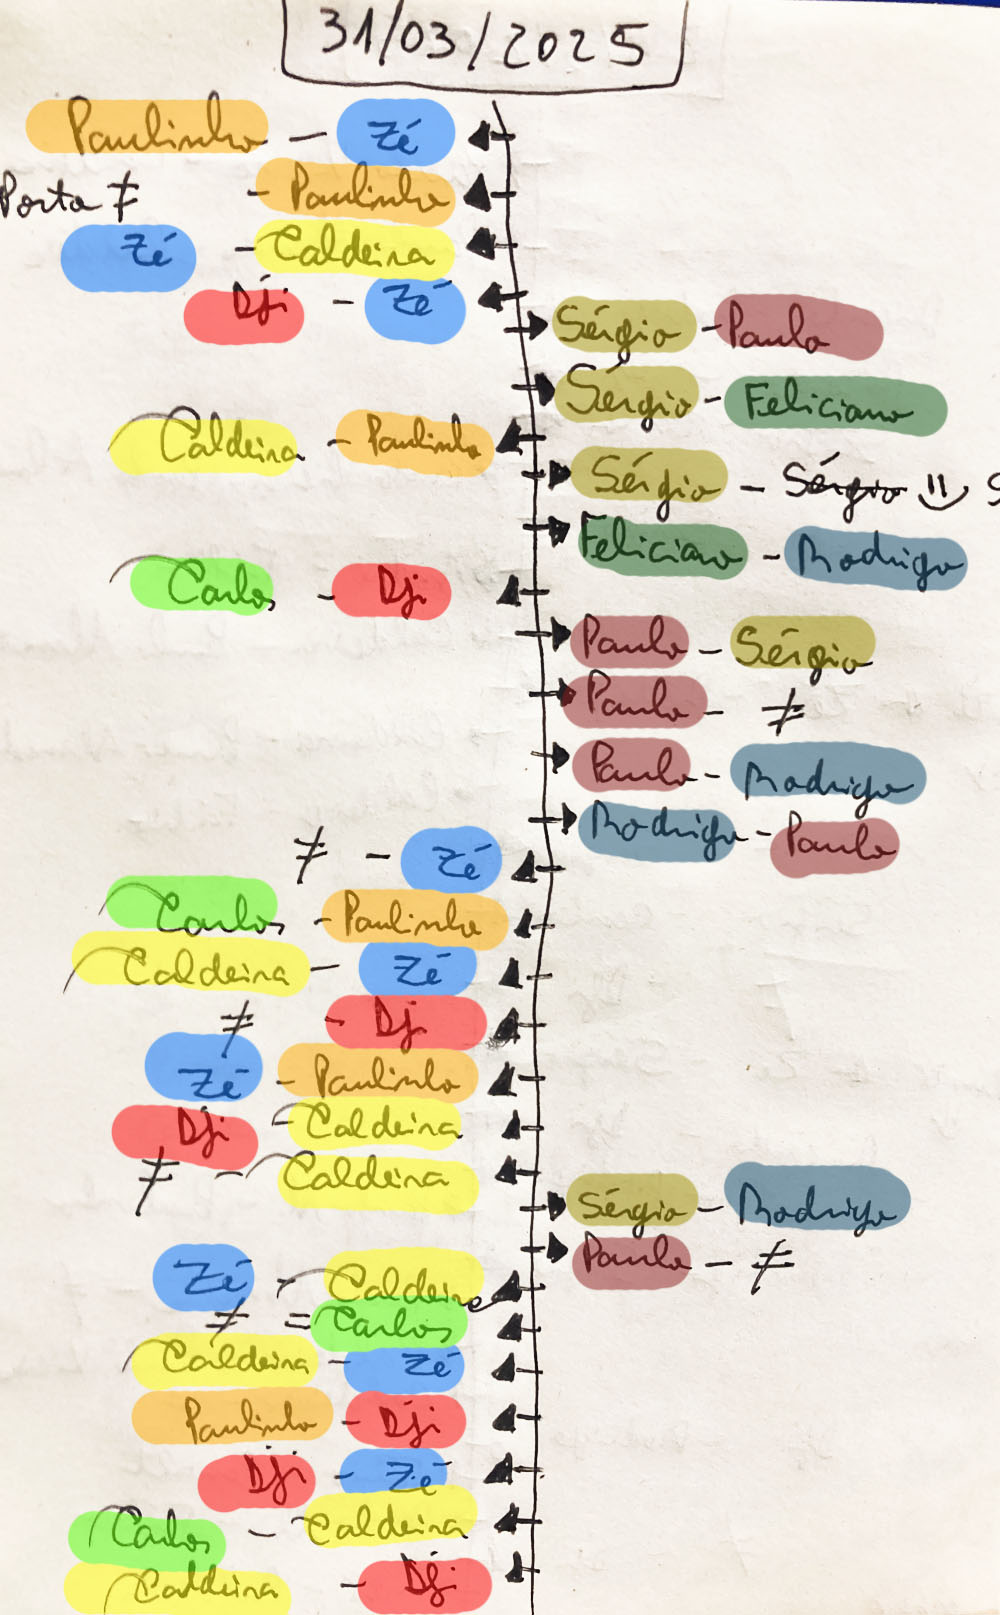 31/03/2025
Paulinho - Zé
Porta ≠ - Paulinho
Zé - Caldeira
Dji - Zé
Sérgio - Paulo
Sérgio - Feliciano
Caldeira - Paulinho
Sérgio - Sérgio
Feliciano - Rodrigo
Carlos - Dji
Paulo - Sérgio
Paulo - ≠
Paulo - Rodrigo
Rodrigo - Paulo
≠ - Zé
Carlos - Paulinho
Caldeira - Zé
≠ - Dji
Zé - Paulinho
Dji - Caldeira
≠ - Caldeira
Sérgio - Rodrigo
Paulo - ≠
Zé - Caldeira
≠ = Carlos
Caldeira - Zé
Paulinho - Dji
Dji - Zé
Carlos - Caldeira
Caldeira - Dji